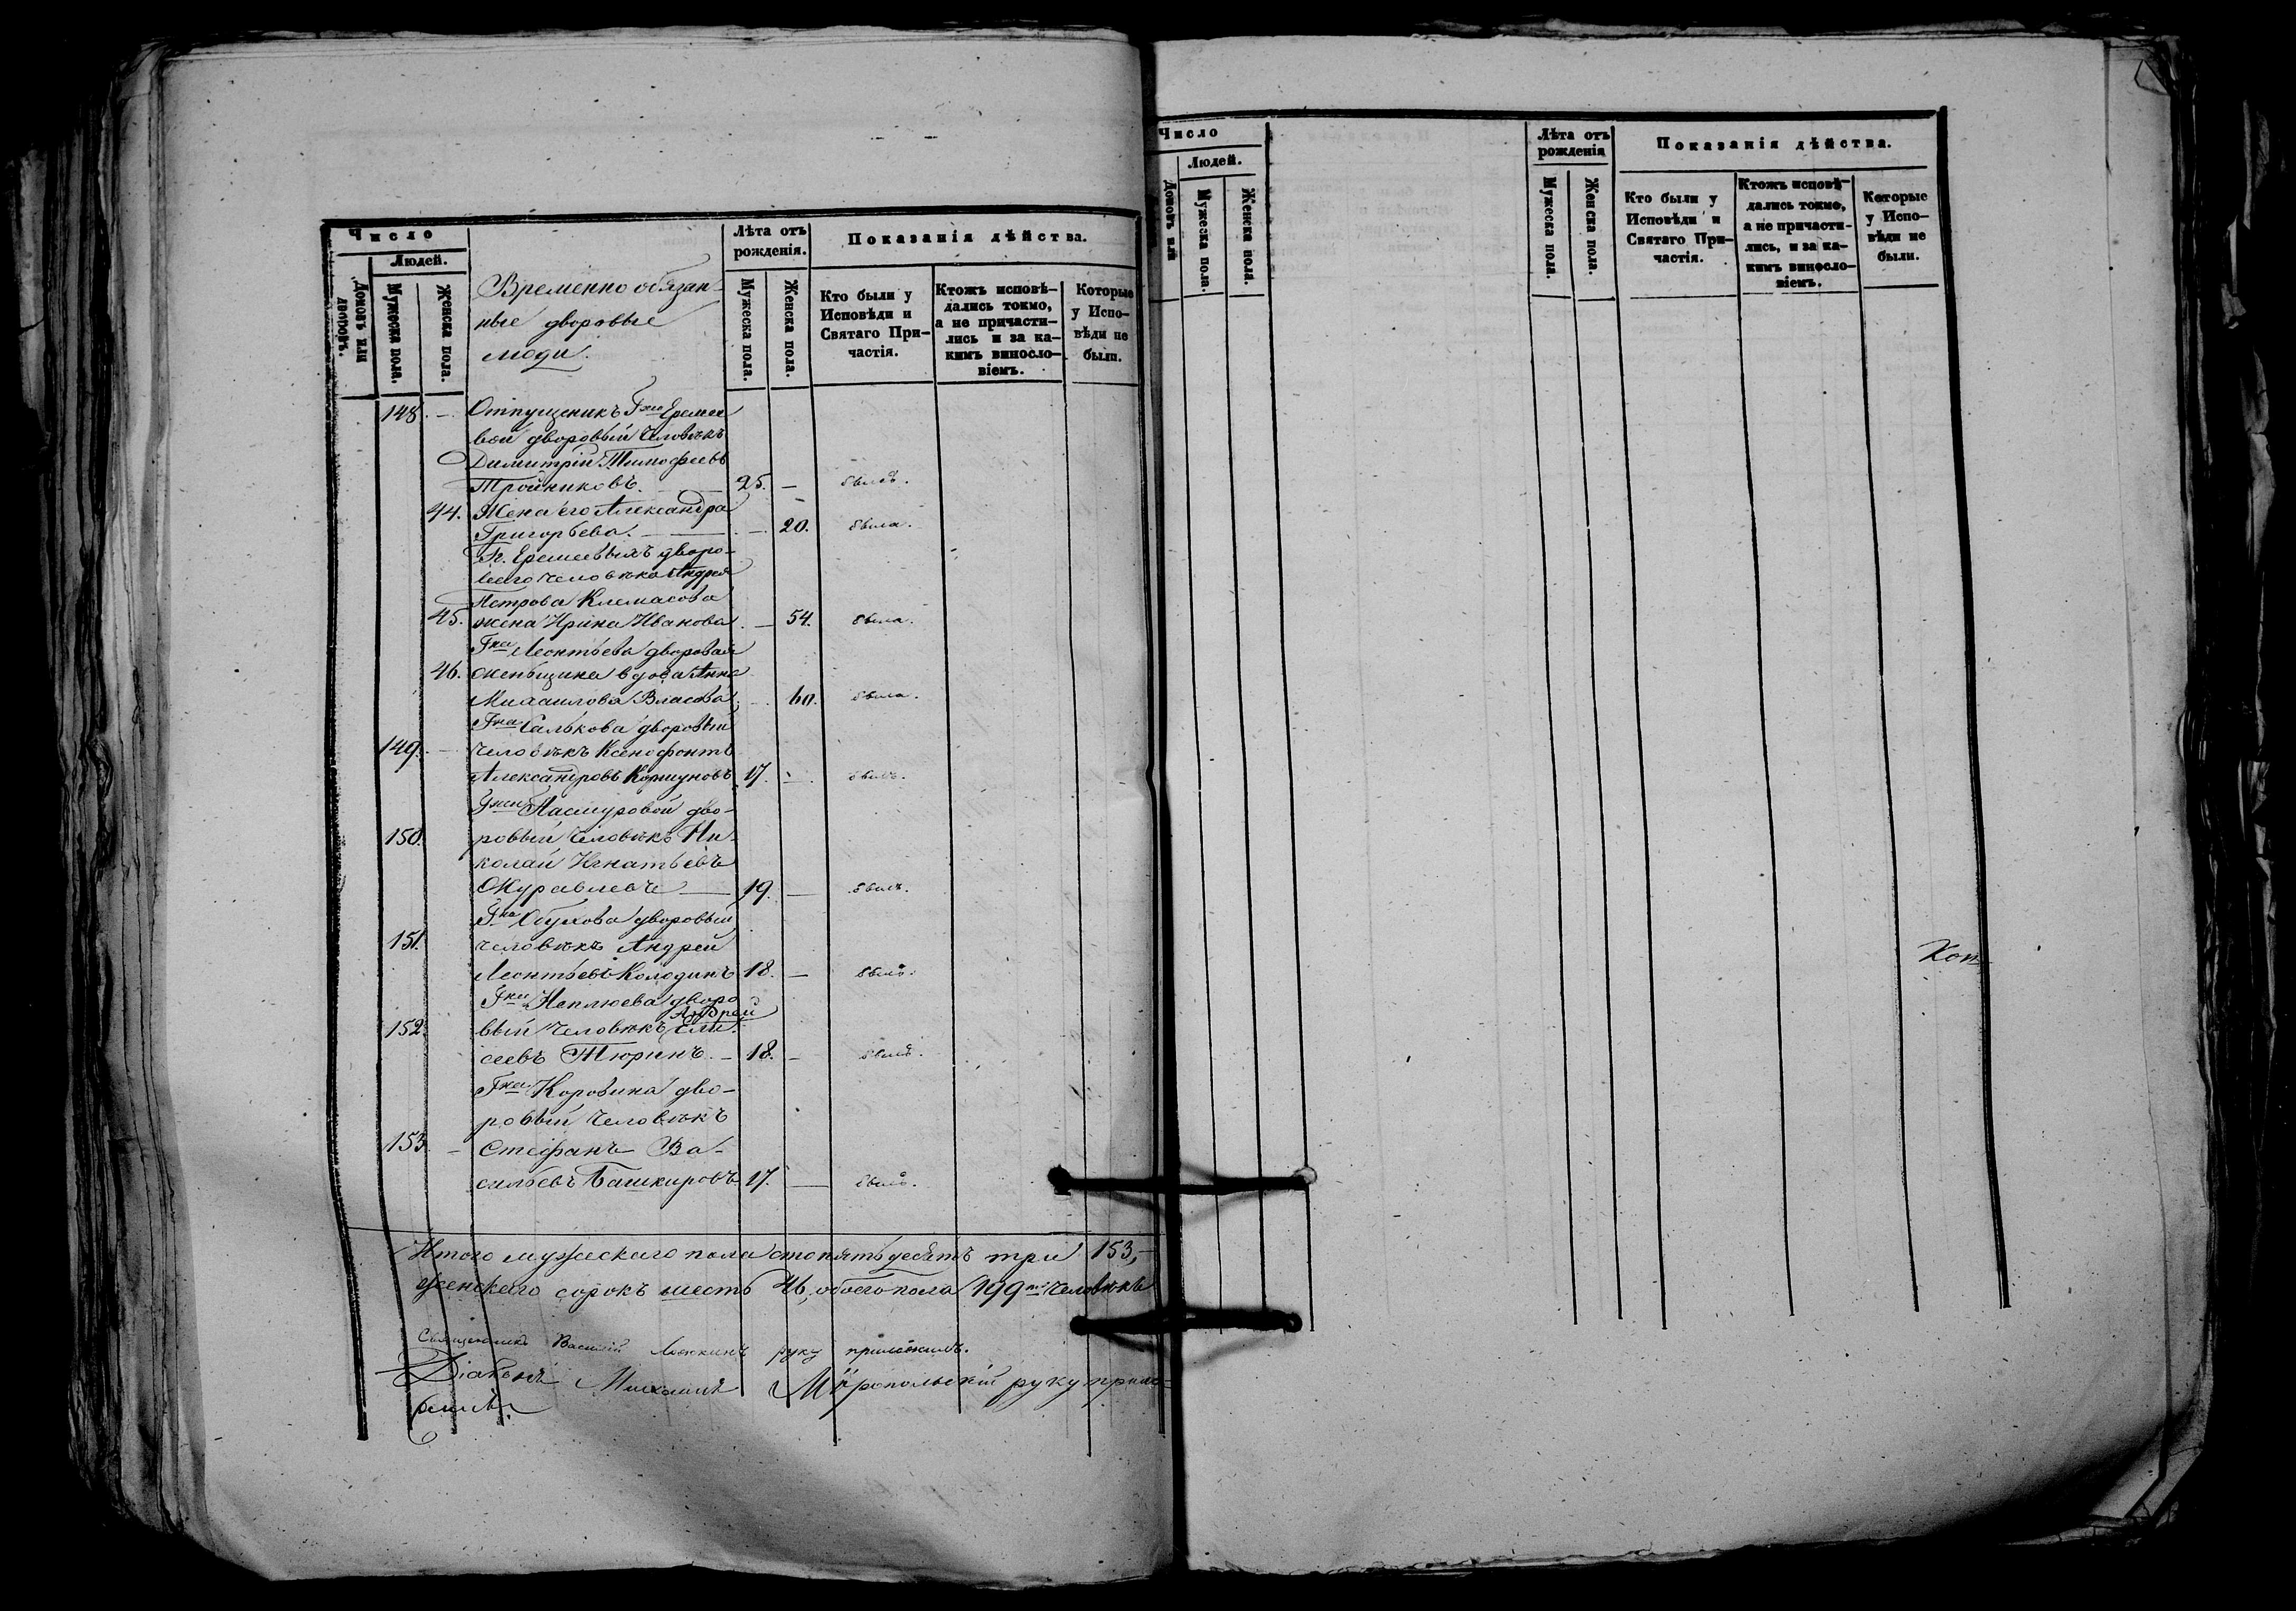 Число
Людей.
Домовъ или дворовъ.
Мужеска пола.
Женска пола.
Временно обязан-
ные дворовые
люди.
Лѣта отъ
рожденія.
Мужеска пола.
Женска пола.
Показанія дѣйства.
Кто были у
Исповѣди и
Святаго При-
частія.
Ктожъ исповѣ-
дались токмо,
а не причасти-
лись и за ка-
кимъ виносло-
віемъ.
Которые
у Испо-
вѣди не
были.
148. — Отпущеникъ Гжи Еремее
вой дворовый человѣкъ
Димитрій Тимофеевъ
Тройниковъ. 25. — былъ.
44. Жена его Александра
Григорьева. — 20. была.
Гг. Еремеевыхъ дворо-
ваго человѣка Андрея
Петрова Клемасова
45. жена Ирина Иванова. — 54. была.
Гна Леонтьева дворовая
46. женьщина вдова Анна
Михаилова Власова. — 60. была.
Гна Салькова дворовый
149. — человѣкъ Ксенофонтъ
Александровъ Коршуновъ 17. — былъ.
Гжи Пасмуровой дво-
150. ровый человѣкъ Ни-
колай Игнатьевъ
Журавлевъ — 19. — былъ.
Гна Обухова дворовый
151. человѣкъ Андрей
Леонтьевъ Колодинъ 18. — былъ.
Гна Неплюева дворо
Андрей
152. вый человѣкъ Ели-
сеевъ Тюринъ. — 18. — былъ.
Гна Коровина дво-
ровый человѣкъ
153. — Стефанъ Ва-
сильевъ Башкировъ 17. — былъ.
Итого мужескаго пола сто пятьдесятъ три 153,
женскаго сорокъ шесть 46, обоего пола 199ть человѣкъ
Священникъ Василій руку приложилъ.
Діаконъ Михаилъ руку прило-
жилъ.
Число
Людей.
Домовъ или
Мужеска пола.
Женска пола.
Лѣта отъ
рожденія
Мужеска пола.
Женска пола.
Показанія дѣйства.
Кто были у
Исповѣди и
Святаго При-
частія.
Ктожъ исповѣ-
дались токмо,
а не причасти-
лись, и за ка-
кимъ виносло-
віемъ.
Которые
у Испо-
вѣди не
были.